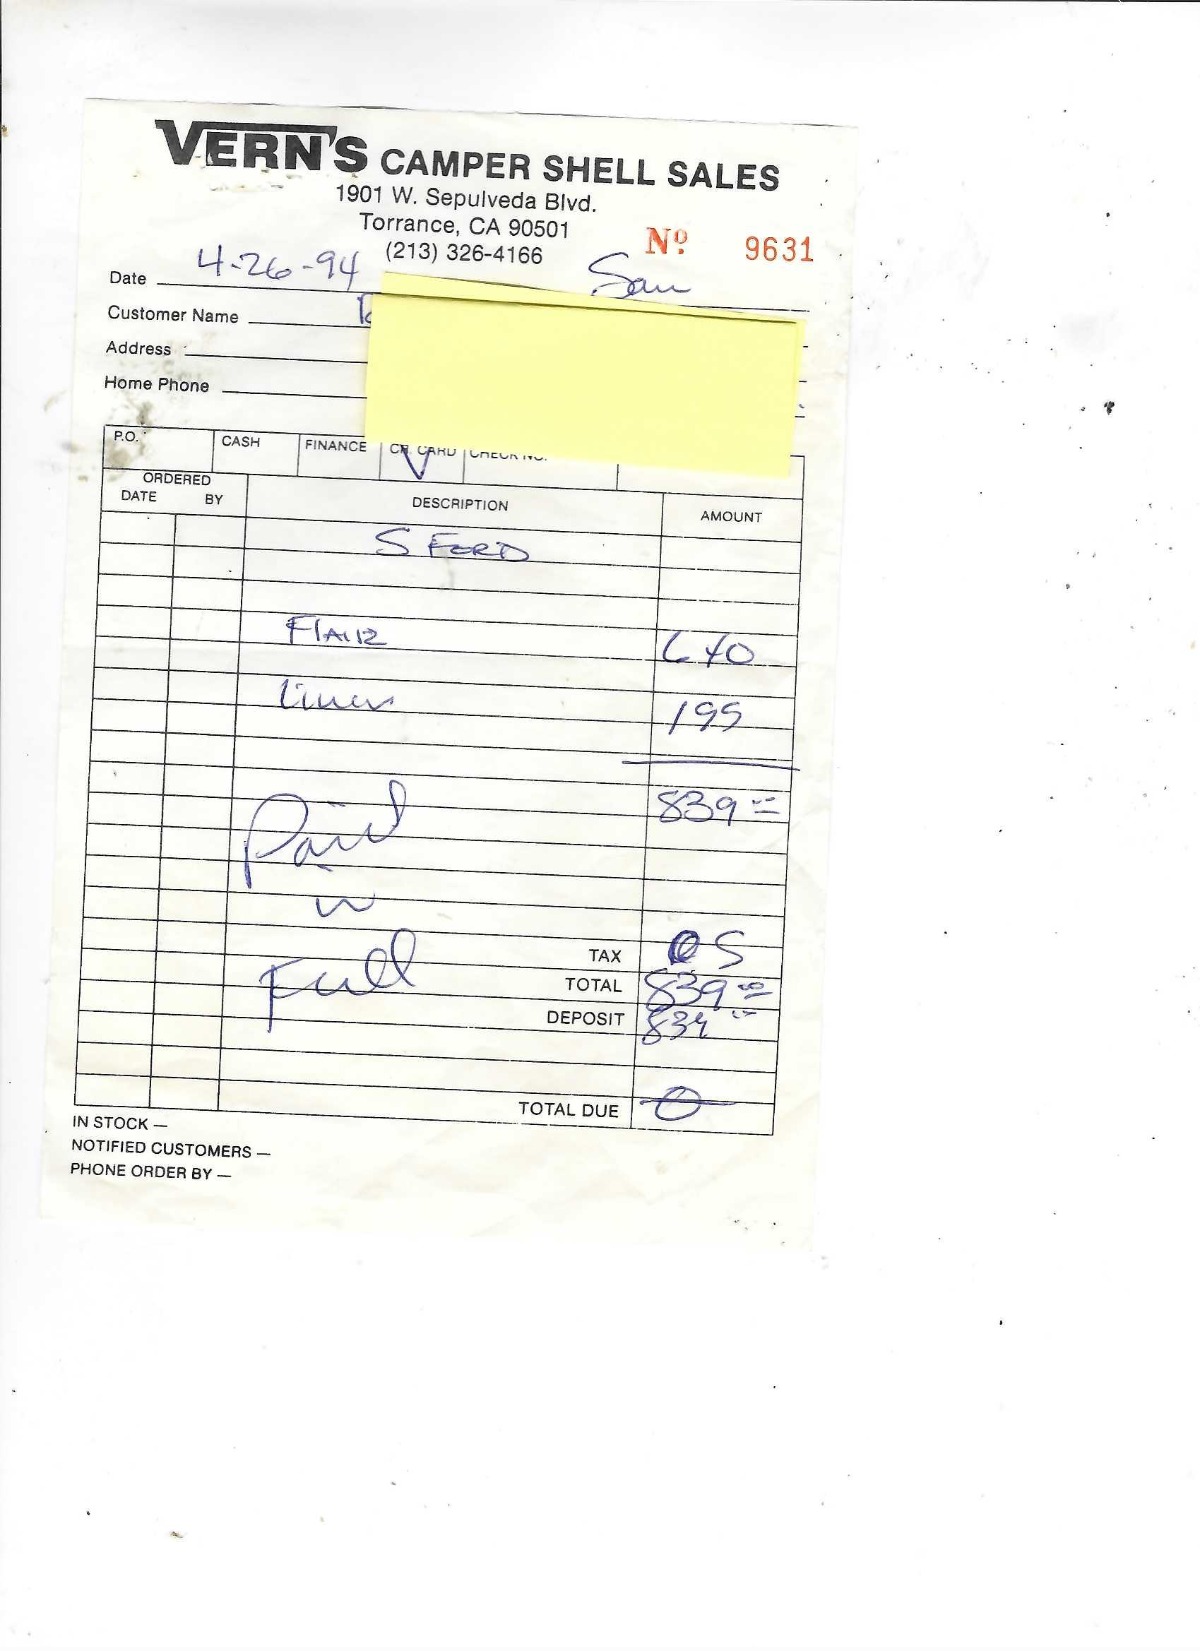 VERN'S CAMPER SHELL SALES
1901 W. Sepulveda Blvd.
Torrance, CA 90501
(213) 326-4166
Nº 9631
Date 4-26-94 Sam
Customer Name
Address
Home Phone
P.O. CASH FINANCE CR. CARD CHECK NO.
ORDERED
DATE BY DESCRIPTION AMOUNT
S FORD
640
Liner 199
839 00
Paid
in
Full
TAX
TOTAL 839 00
DEPOSIT
TOTAL DUE 0
IN STOCK —
NOTIFIED CUSTOMERS —
PHONE ORDER BY —